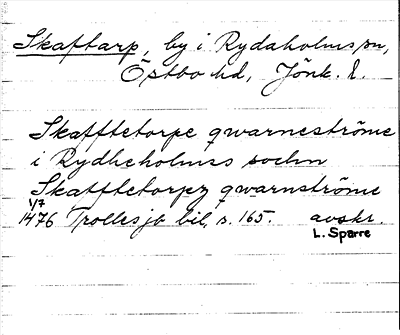 Skaftarp, by i Rydaholms sn,
Östbo hd, Jönk. l.
Skafftetorpe qwarneströme
i Rydheholmss sochn
Skafftetorpz qwarnströme
1/7
1476 Trollesjö bil. s. 165. avskr.
L. Sparre